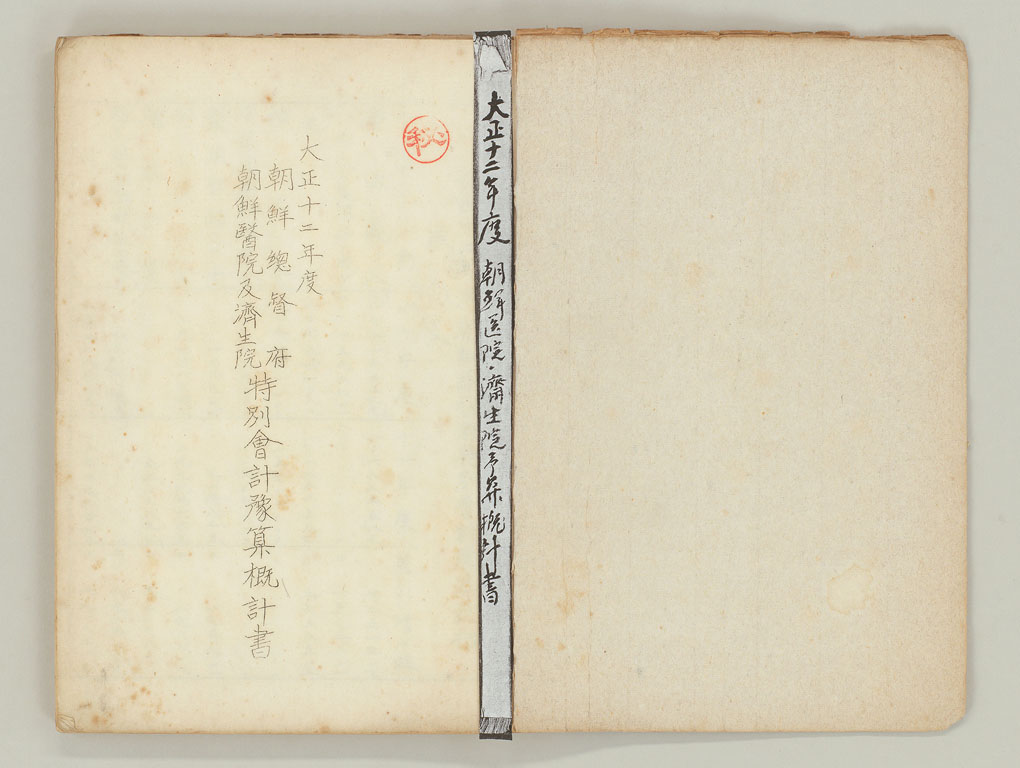 大正十二年度 朝鮮医院・濟生院予算概計書
秘
大正十二年度
朝鮮總督府
朝鮮醫院及濟生院
特別會計豫算概計書